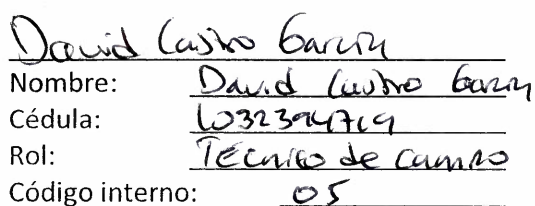 David Castro Garcia
Nombre: David Castro Garcia
Cédula: 1032394719
Rol: Técnico de campo
Código interno: 05